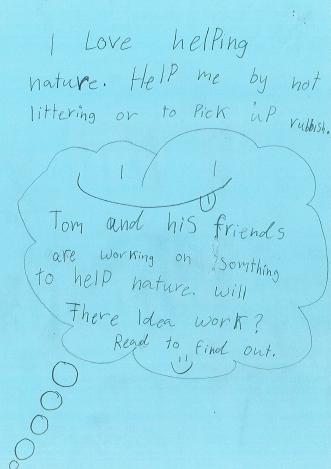 I Love helping
nature. Help me by not
littering or to Pick up rubbish.
Tom and his friends
are working on somthing
to help nature. will
There Idea work?
Read to find out.